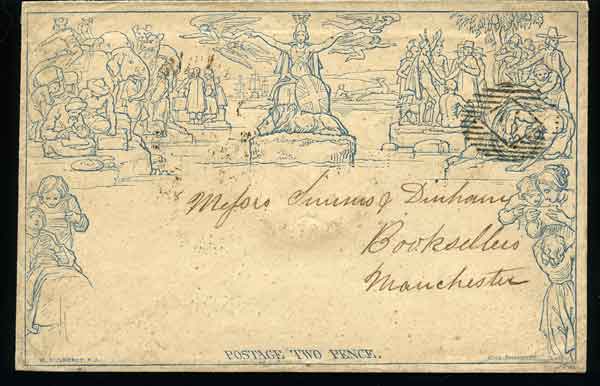 Messrs Simms & Dinham
Booksellers
Manchester
POSTAGE TWO PENCE.
W. MULREADY R.A.